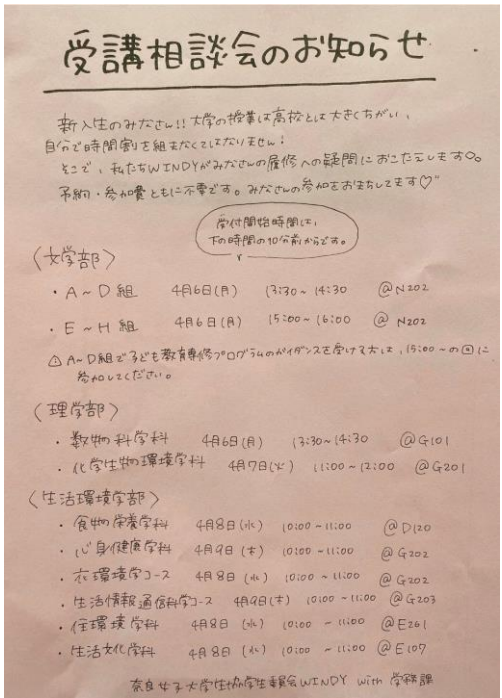 受講相談会のお知らせ
新入生のみなさん!! 大学の授業は高校とは大きくちがい、
自分で時間割を組まなくてはなりません!
そこで、私たちWINDYがみなさんの履修への疑問におこたえします。
予約・参加費ともに不要です。みなさんの参加をおまちしてます♡
受付開始時間は、
下の時間の10分前からです。
〈文学部〉
・A〜D組 4月6日(月) 13:30〜14:30 @N202
・E〜H組 4月6日(月) 15:00〜16:00 @N202
⚠A〜D組で子ども教育専修プログラムのガイダンスを受ける方は、15:00〜の回に
参加してください。
〈理学部〉
・数物科学科 4月6日(月) 13:30〜14:30 @G101
・化学生物環境学科 4月7日(火) 11:00〜12:00 @G201
〈生活環境学部〉
・食物栄養学科 4月8日(水) 10:00〜11:00 @D120
・心身健康学科 4月9日(木) 10:00〜11:00 @G202
・衣環境学コース 4月8日(水) 10:00〜11:00 @G202
・生活情報通信科学コース 4月9日(木) 10:00〜11:00 @G203
・住環境学科 4月8日(水) 10:00〜11:00 @E261
・生活文化学科 4月8日(水) 10:00〜11:00 @E107
奈良女子大学生協学生委員会WINDY with 学務課